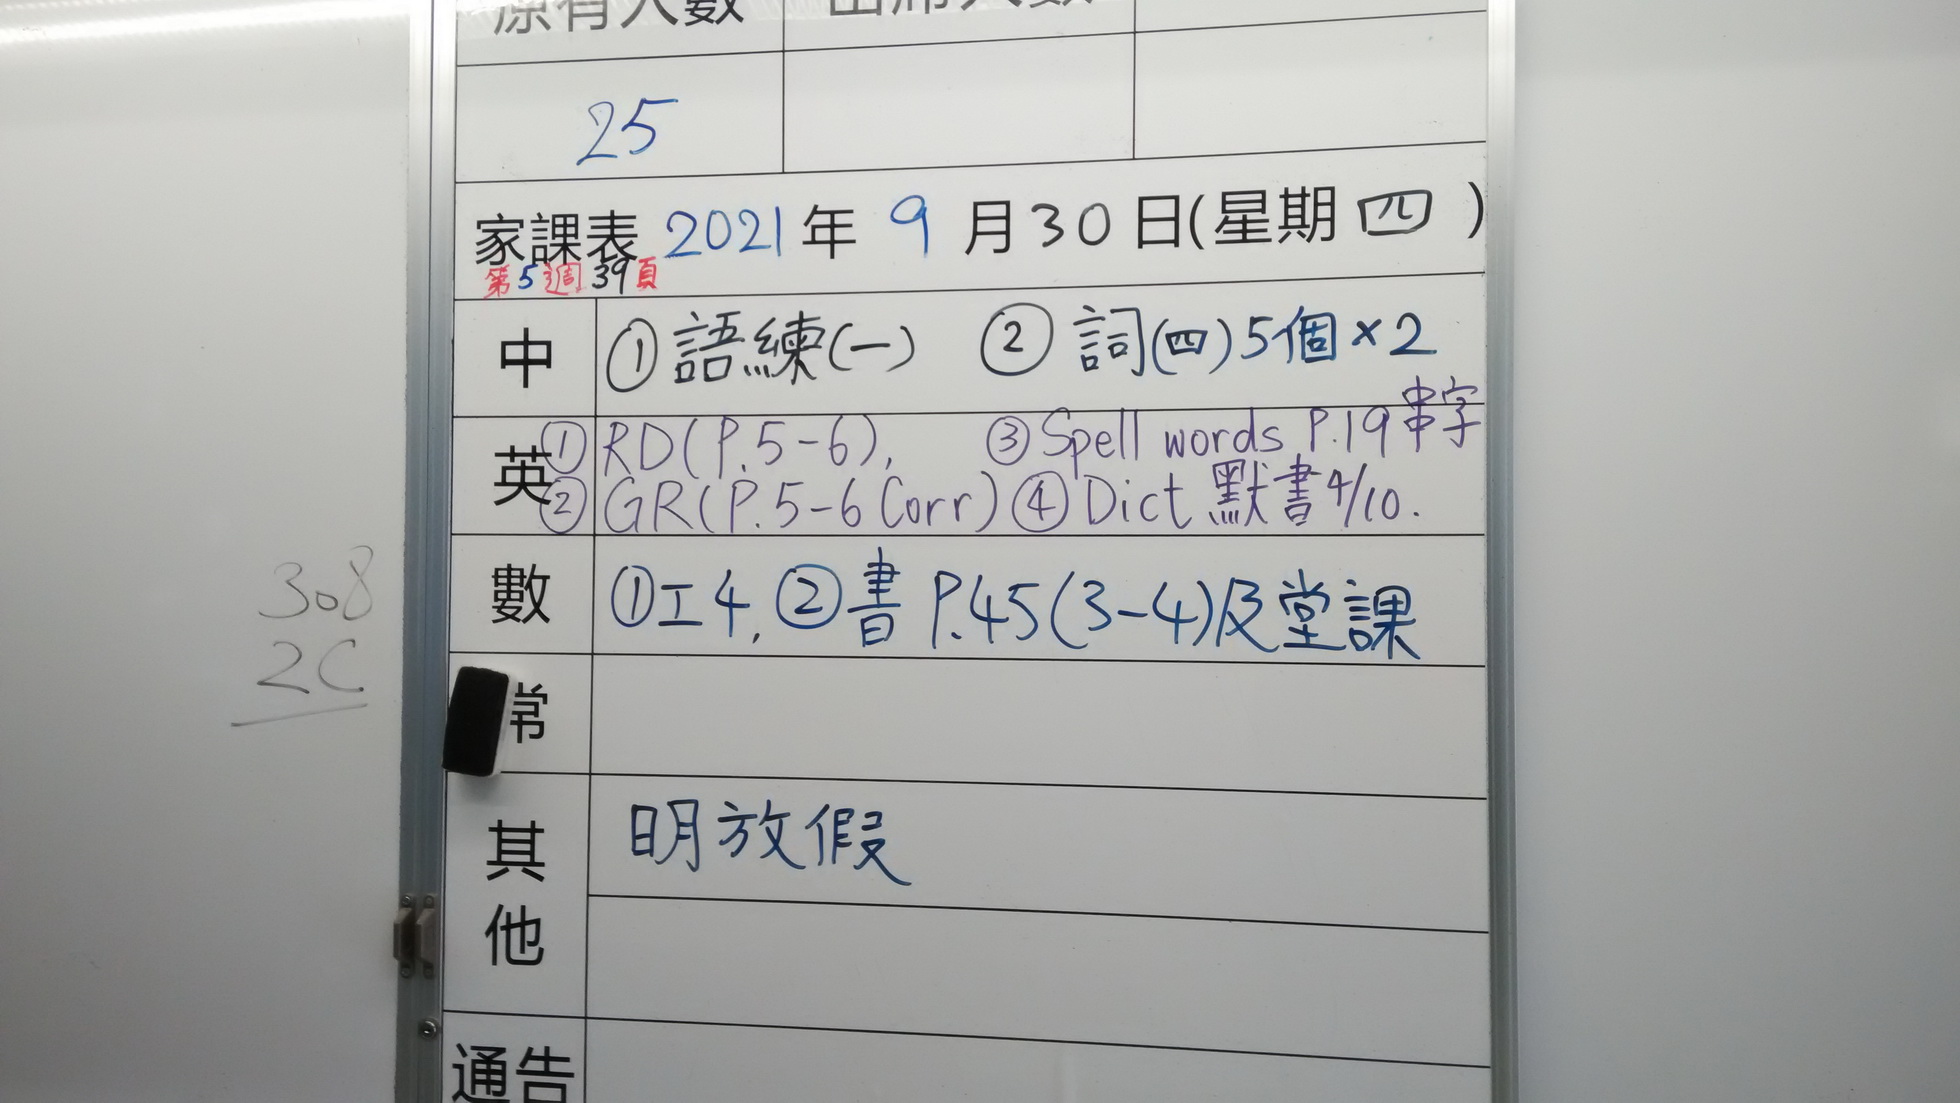 原有人數 出席人數
25
家課表 2021年 9月30日(星期四)
第5週39頁
中 ①語練(一) ②詞(四)5個×2
英 ①RD(P.5-6), ③Spell words P.19串字
②GR(P.5-6 Corr) ④Dict 默書4/10.
數 ①工4, ②書 P.45(3-4)及堂課
308
2C
常
其他 明放假
通告